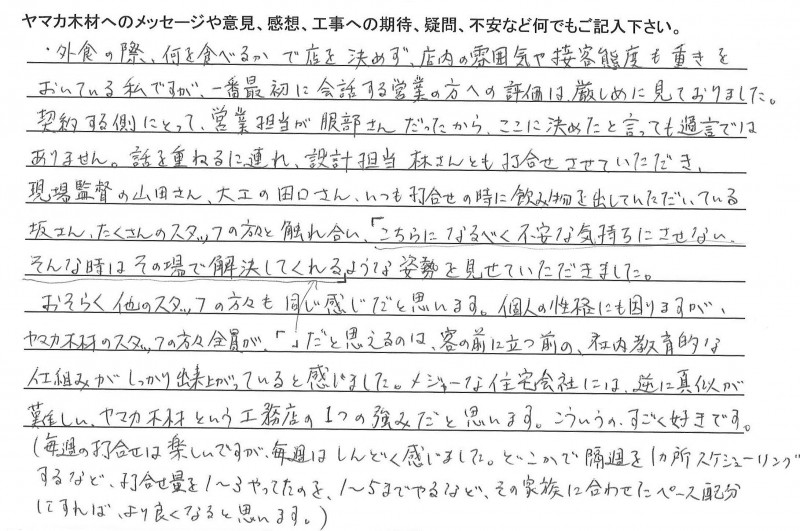 ヤマカ木材へのメッセージや意見、感想、工事への期待、疑問、不安など何でもご記入下さい。
・外食の際、何を食べるかで店を決めず、店内の雰囲気や接客態度も重きを
おいている私ですが、一番最初に会話する営業の方への評価は、厳しめに見ておりました。
契約する側にとって、営業担当が服部さんだったから、ここに決めたと言っても過言では
ありません。話を重ねるに連れ、設計担当 林さんとも打合せさせていただき、
現場監督の山田さん、大工の田口さん、いつも打合せの時に飲み物を出していただいている
坂さん、たくさんのスタッフの方々と触れ合い、「こちらになるべく不安な気持ちにさせない、
そんな時はその場で解決してくれる」ような姿勢を見せていただきました。
おそらく他のスタッフの方々も同じ感じだと思います。個人の性格にも因りますが、
ヤマカ木材のスタッフの方々全員が、「 」だと思えるのは、客の前に立つ前の、社内教育的な
仕組みがしっかり出来上がっていると感じました。メジャーな住宅会社には、逆に真似が
難しい、ヤマカ木材という工務店の1つの強みだと思います。こういうの、すごく好きです。
(毎週の打合せは楽しいですが、毎週はしんどく感じました。どこかで隔週を1カ所スケジューリング
するなど、打合せ量を1〜3やってたのを、1〜5までやるなど、その家族に合わせたペース配分
にすれば、より良くなると思います。)